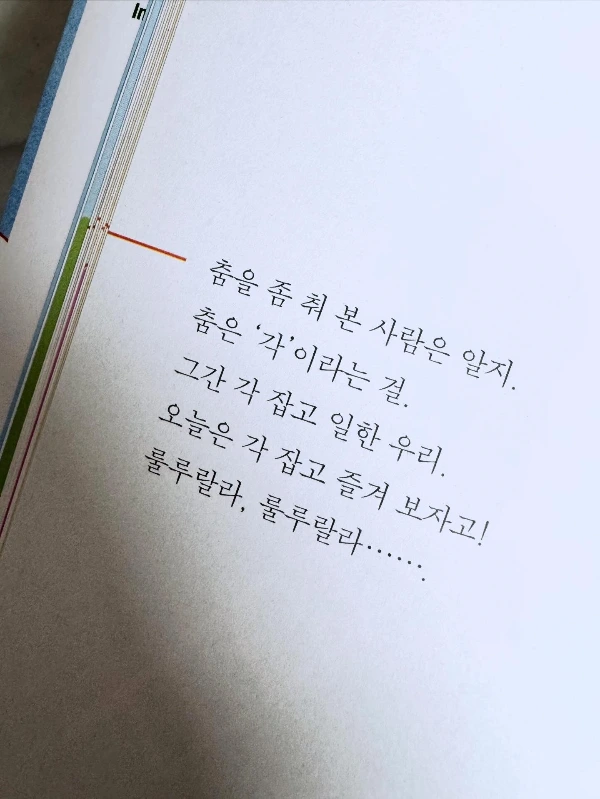 In
춤을 좀 춰 본 사람은 알지.
춤은 ‘각’이라는 걸.
그간 각 잡고 일한 우리.
오늘은 각 잡고 즐겨 보자고!
룰루랄라, 룰루랄라…….